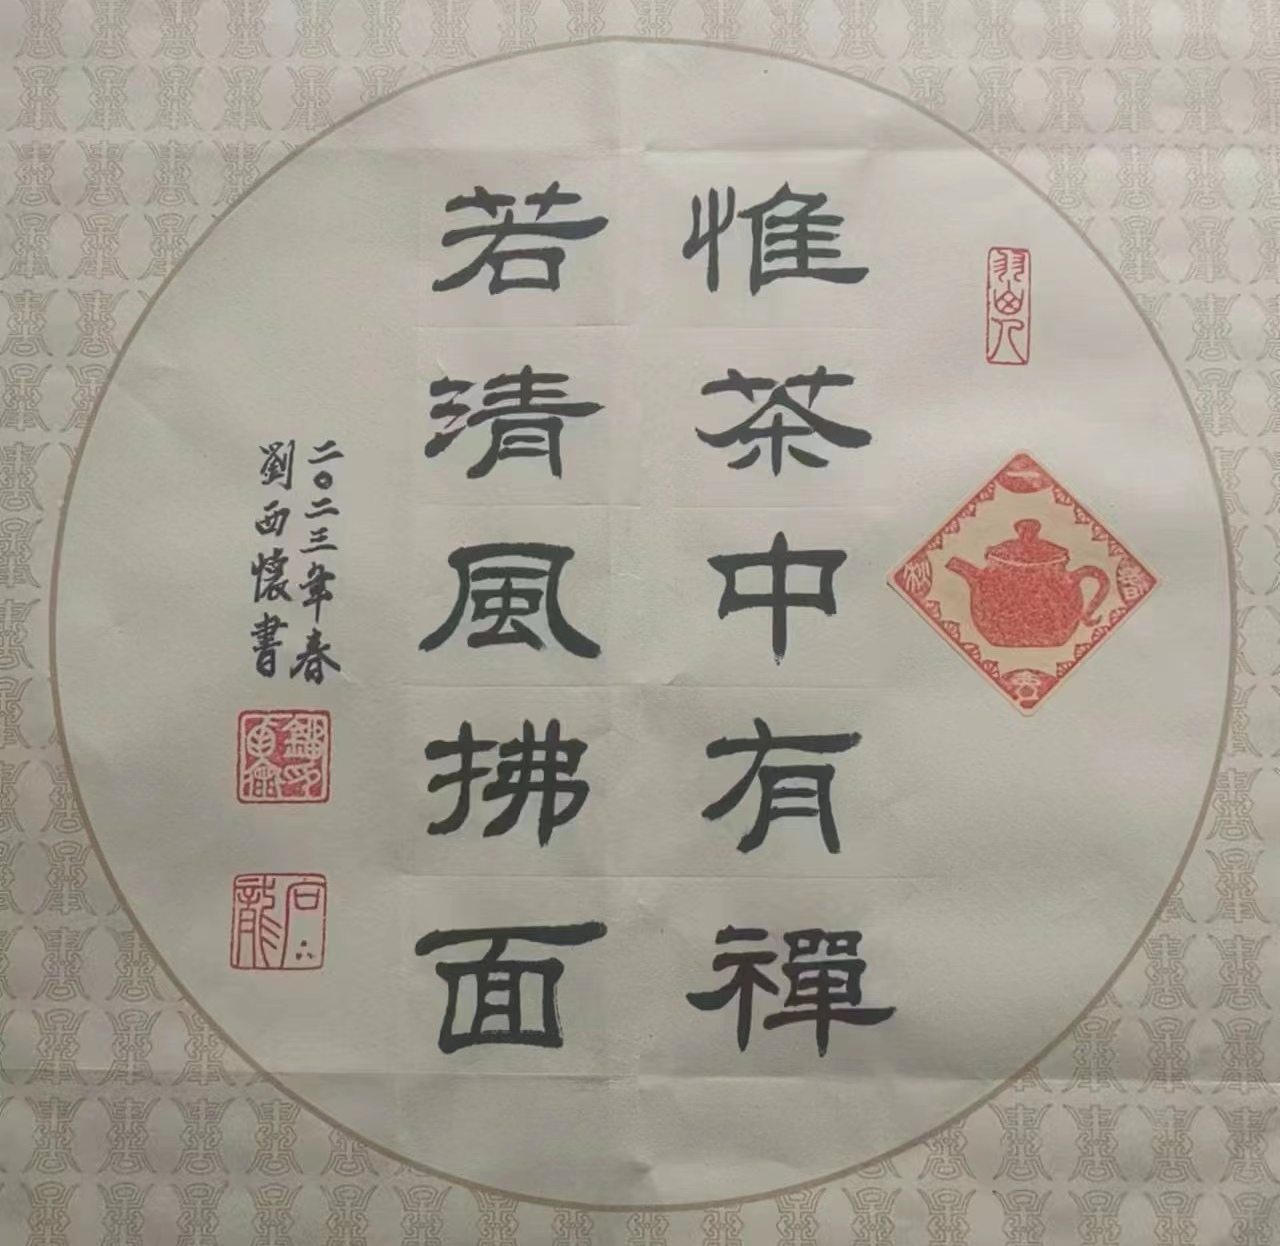 惟茶中有禪
若清風拂面
二〇二三年春
劉西懷書